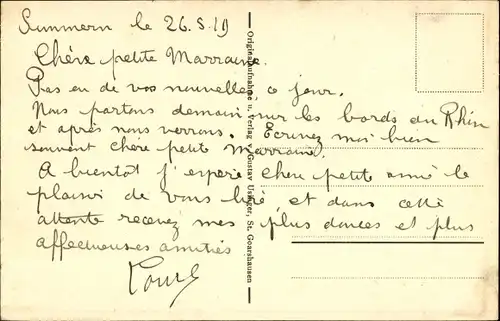 Simmern le 26.8.19
Chère petite Marraine.
Pas eu de vos nouvelles ce jour.
Nous partons demain sur les bords du Rhin
et après nous verrons. Ecrivez moi bien
souvent chère petite Marraine.
A bientôt j'espère chère petite amie le
plaisir de vous lire, et dans cette
attente recevez mes plus douces et plus
affectueuses amitiés
Originalaufnahme u. Verlag Gustav Usinger, St. Goarshausen